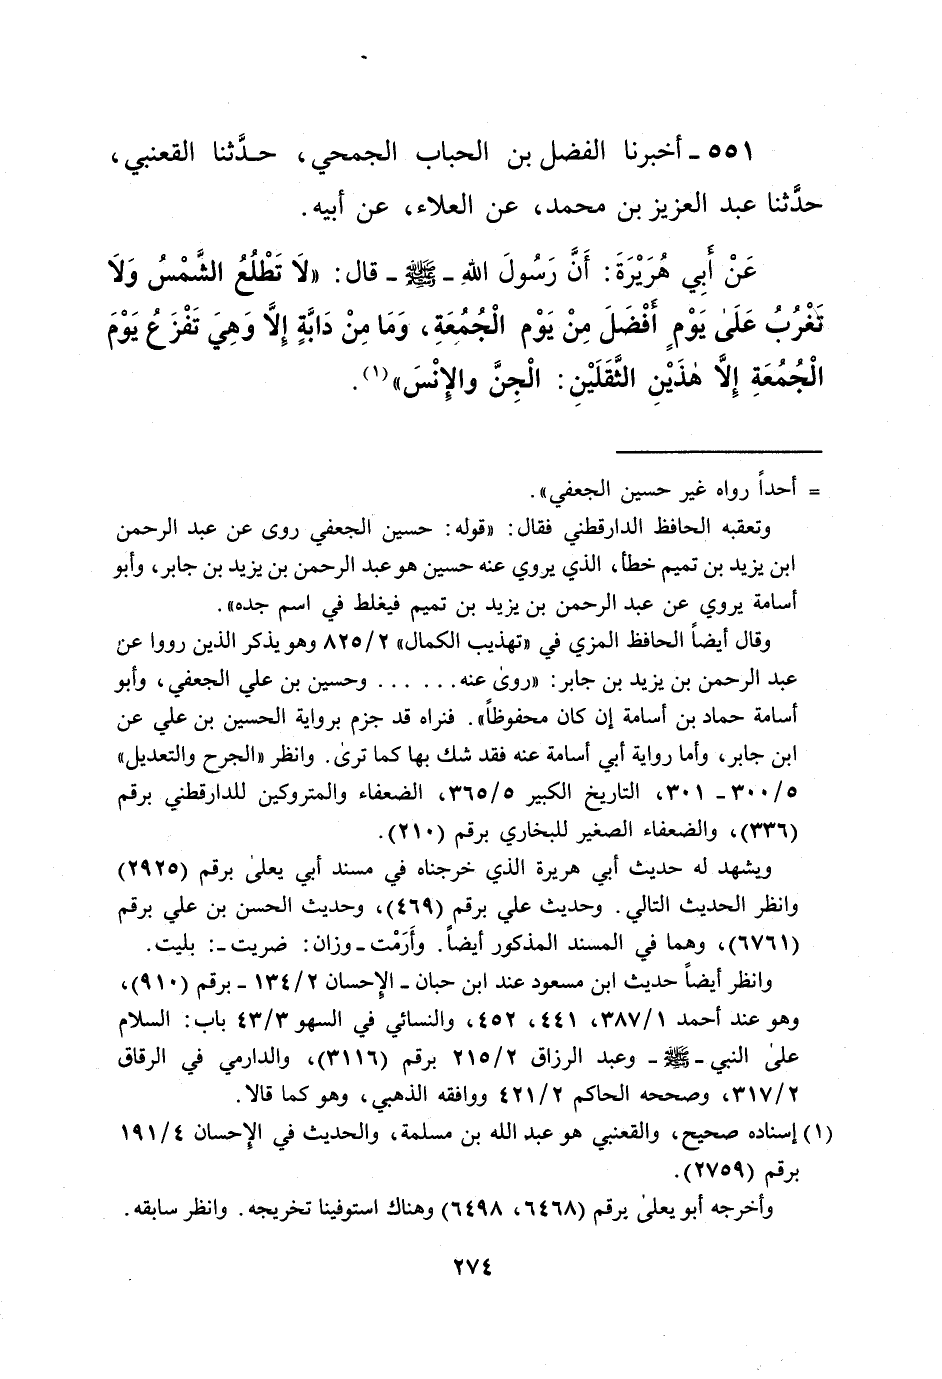 ٥٥١ ـ أخبرنا الفضل بن الحباب الجمحي، حدَّثنا القعنبي،
حدَّثنا عبد العزيز بن محمد، عن العلاء، عن أبيه.
عَنْ أَبِي هُرَيْرَةَ: أَنَّ رَسُولَ اللهِ ـ ﷺ ـ قال: «لَا تَطْلُعُ الشَّمْسُ وَلَا
تَغْرُبُ عَلَىٰ يَوْمٍ أَفْضَلَ مِنْ يَوْمِ الْجُمُعَةِ، وَمَا مِنْ دَابَّةٍ إِلَّا وَهِيَ تَفْزَعُ يَوْمَ
الْجُمُعَةِ إِلَّا هٰذَيْنِ الثَّقَلَيْنِ: الْجِنَّ والإِنْسَ»(١).
= أحداً رواه غير حسين الجعفي».
وتعقبه الحافظ الدارقطني فقال: «قوله: حسين الجعفي روى عن عبد الرحمن
ابن يزيد بن تميم خطأ، الذي يروي عنه حسين هو عبد الرحمن بن يزيد بن جابر، وأبو
أسامة يروي عن عبد الرحمن بن يزيد بن تميم فيغلط في اسم جده».
وقال أيضاً الحافظ المزي في «تهذيب الكمال» ٨٢٥/٢ وهو يذكر الذين رووا عن
عبد الرحمن بن يزيد بن جابر: «روىٰ عنه...... وحسين بن علي الجعفي، وأبو
أسامة حماد بن أسامة إن كان محفوظاً». فنراه قد جزم برواية الحسين بن علي عن
ابن جابر، وأما رواية أبي أسامة عنه فقد شك بها كما ترىٰ. وانظر «الجرح والتعديل»
٣٠٠/٥ ـ ٣٠١، التاريخ الكبير ٣٦٥/٥، الضعفاء والمتروكين للدارقطني برقم
(٣٣٦)، والضعفاء الصغير للبخاري برقم (٢١٠).
ويشهد له حديث أبي هريرة الذي خرجناه في مسند أبي يعلىٰ برقم (٢٩٢٥)
وانظر الحديث التالي. وحديث علي برقم (٤٦٩)، وحديث الحسن بن علي برقم
(٦٧٦١)، وهما في المسند المذكور أيضاً. وأَرَمْت ـ وزان: ضربت ـ: بليت.
وانظر أيضاً حديث ابن مسعود عند ابن حبان ـ الإحسان ١٣٤/٢ ـ برقم (٩١٠)،
وهو عند أحمد ٣٨٧/١، ٤٤١، ٤٥٢، والنسائي في السهو ٤٣/٣ باب: السلام
علىٰ النبي ـ ﷺ ـ وعبد الرزاق ٢١٥/٢ برقم (٣١١٦)، والدارمي في الرقاق
٣١٧/٢، وصححه الحاكم ٤٢١/٢ ووافقه الذهبي، وهو كما قالا.
(١) إسناده صحيح، والقعنبي هو عبد الله بن مسلمة، والحديث في الإحسان ١٩١/٤
برقم (٢٧٥٩).
وأخرجه أبو يعلىٰ برقم (٦٤٦٨، ٦٤٩٨) وهناك استوفينا تخريجه. وانظر سابقه.
٢٧٤